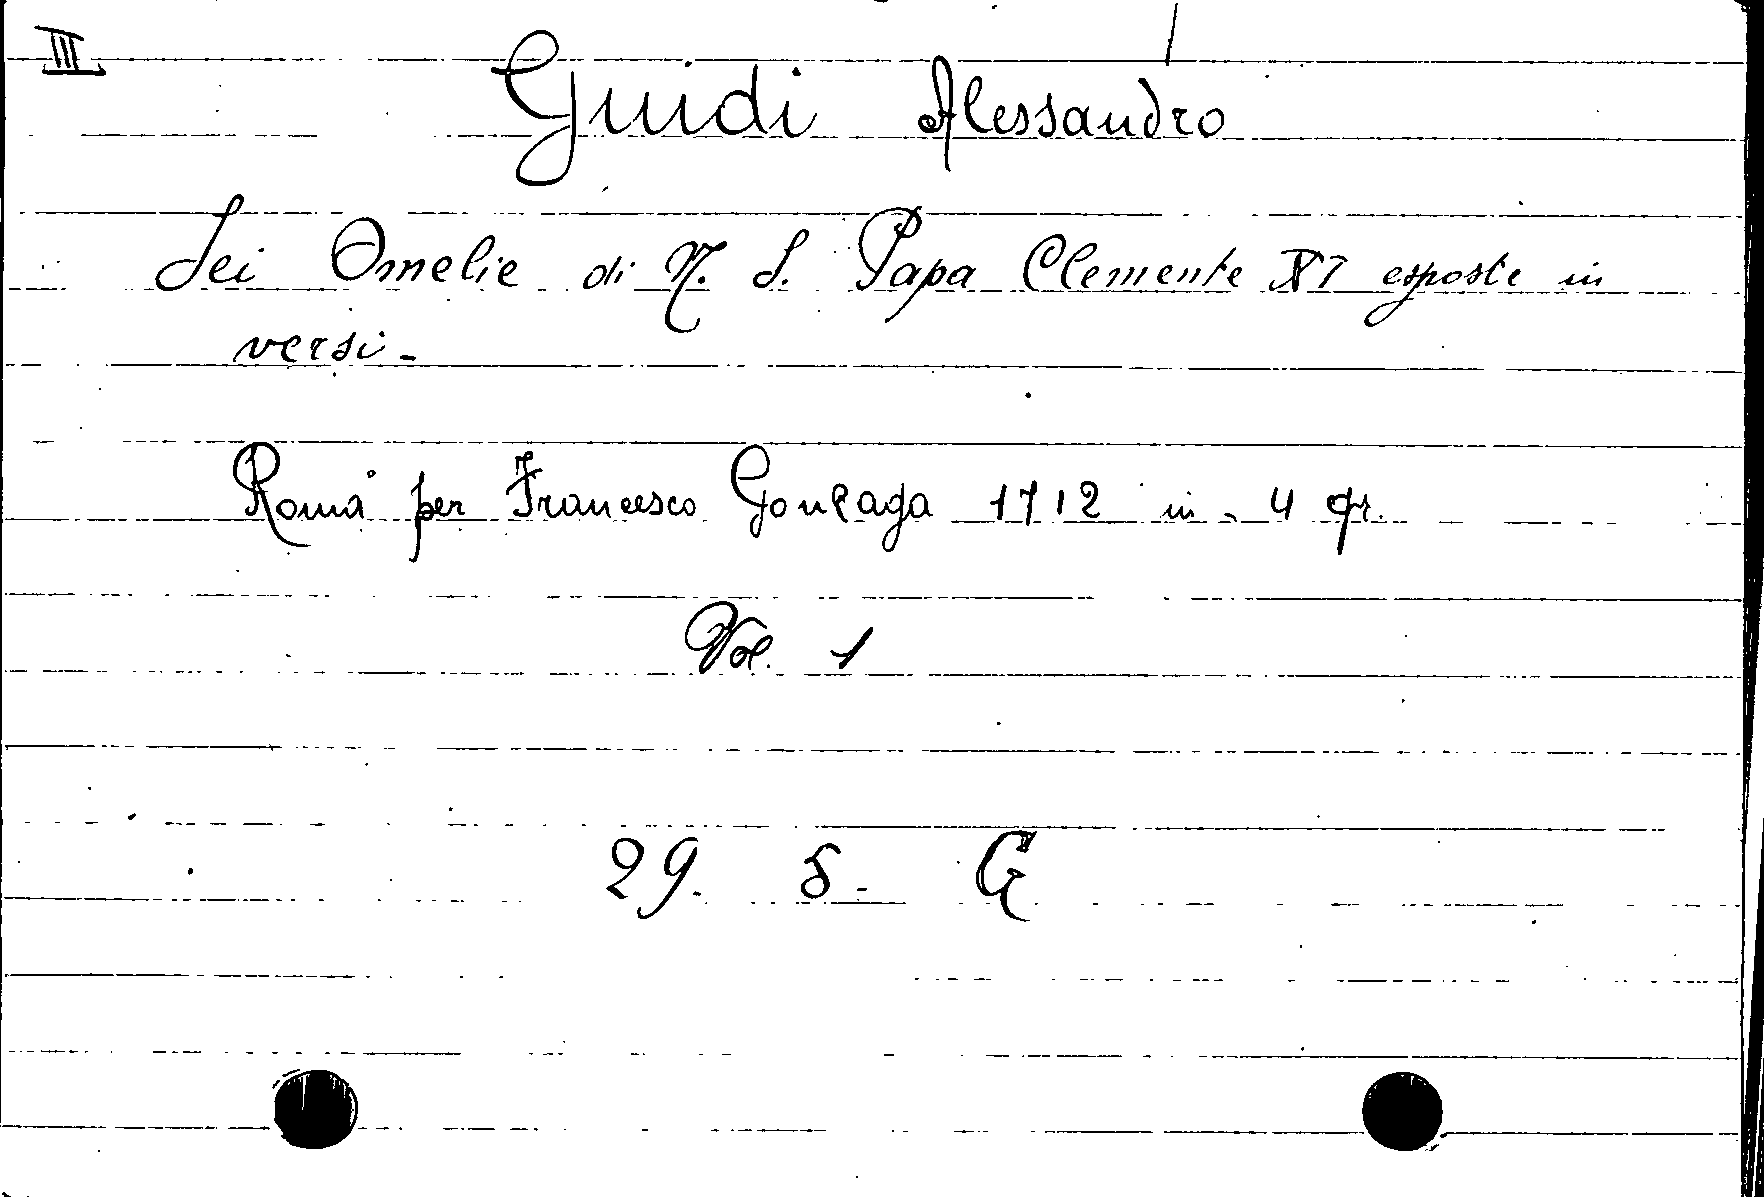 III
Guidi Alessandro
Sei Omelie di N. S. Papa Clemente XI esposte in
versi -
Roma per Francesco Gonzaga 1712 in - 4 gr.
Vol. 1
29. 5. G